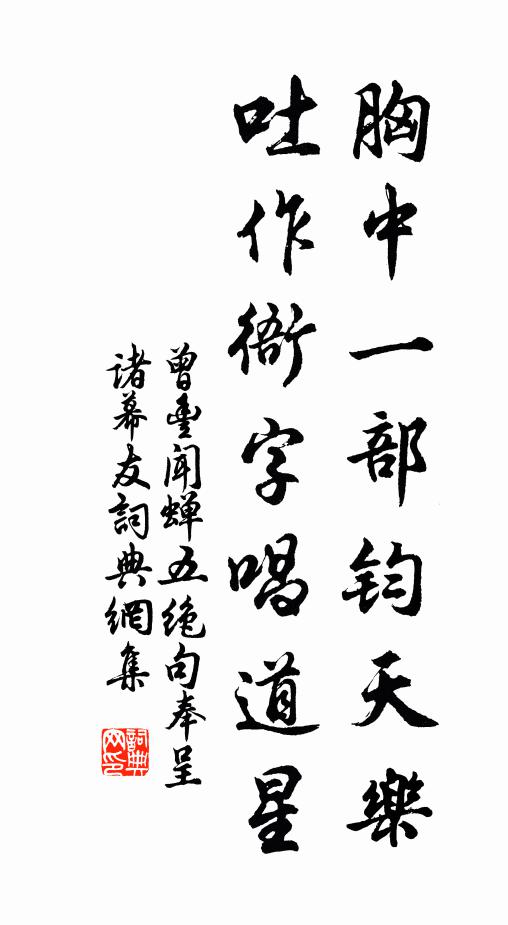 胸中一部鈞天樂
吐作衙字唱道星
曾豊聞蟬五絶句奉呈
諸幕友詞典網集
詞典网印